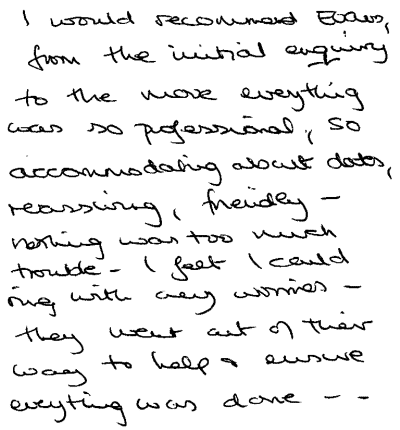 I would recommend Evans,
from the initial enquiry
to the move everything
was so professional, so
accommodating about dates,
reassuring, friendly –
nothing was too much
trouble – I felt I could
ring with any worries –
they went out of their
way to help & ensure
everything was done – –